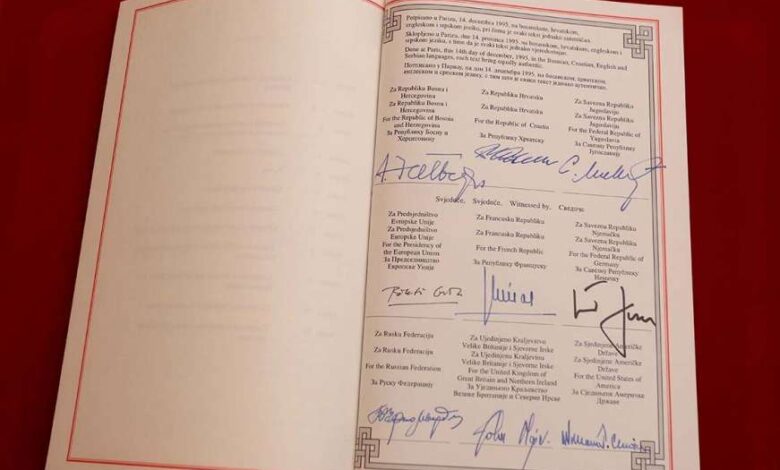 Potpisano u Parizu, 14. decembra 1995, na bosanskom, hrvatskom,
engleskom i srpskom jeziku, pri čemu je svaki tekst jednako autentičan.
Sklopljeno u Parizu, dne 14. prosinca 1995, na bosanskom, hrvatskom, engleskom i
srpskom jeziku, s time da je svaki tekst jednako vjerodostojan.
Done at Paris, this 14th day of december, 1995, in the Bosnian, Croatian, English and
Serbian languages, each text being equally authentic.
Потписано у Паризу, на дан 14. децембра 1995, на босанском, хрватском,
енглеском и српском језику, с тим што је сваки текст једнако аутентичан.
Za Republiku Bosnu i
Hercegovinu
Za Republiku Bosnu i
Hercegovinu
For the Republic of Bosnia
and Herzegovina
За Републику Босну и
Херцеговину
Za Republiku Hrvatsku
Za Republiku Hrvatsku
For the Republic of Croatia
За Републику Хрватску
Za Saveznu Republiku
Jugoslaviju
Za Saveznu Republiku
Jugoslaviju
For the Federal Republic of
Yugoslavia
За Савезну Републику
Југославију
Svjedoče, Svjedoče, Witnessed by, Сведоче
Za Predsjedništvo
Evropske Unije
Za Predsjedništvo
Europske Unije
For the Presidency of
the European Union
За Председништво
Европске Уније
Za Francusku Republiku
Za Francusku Republiku
For the French Republic
За Републику Француску
Za Saveznu Republiku
Njemačku
Za Saveznu Republiku
Njemačku
For the Federal Republic of
Germany
За Савезну Републику
Немачку
Za Rusku Federaciju
Za Rusku Federaciju
For the Russian Federation
За Руску Федерацију
Za Ujedinjeno Kraljevstvo
Velike Britanije i Sjeverne Irske
Za Ujedinjeno Kraljevinu
Velike Britanije i Sjeverne Irske
For the United Kingdom of
Great Britain and Northern Ireland
За Уједињено Краљевство
Велике Британије и Северне Ирске
Za Sjedinjene Američke
Države
Za Sjedinjene Američke
Države
For the United States of
America
За Сједињене Америчке
Државе